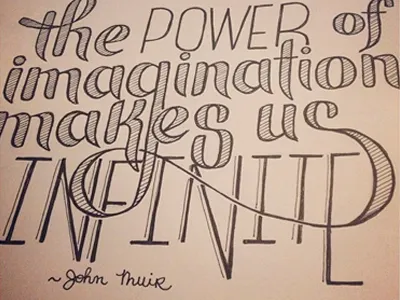 the POWER of
imagination
makes us
INFINITE
~John Muir